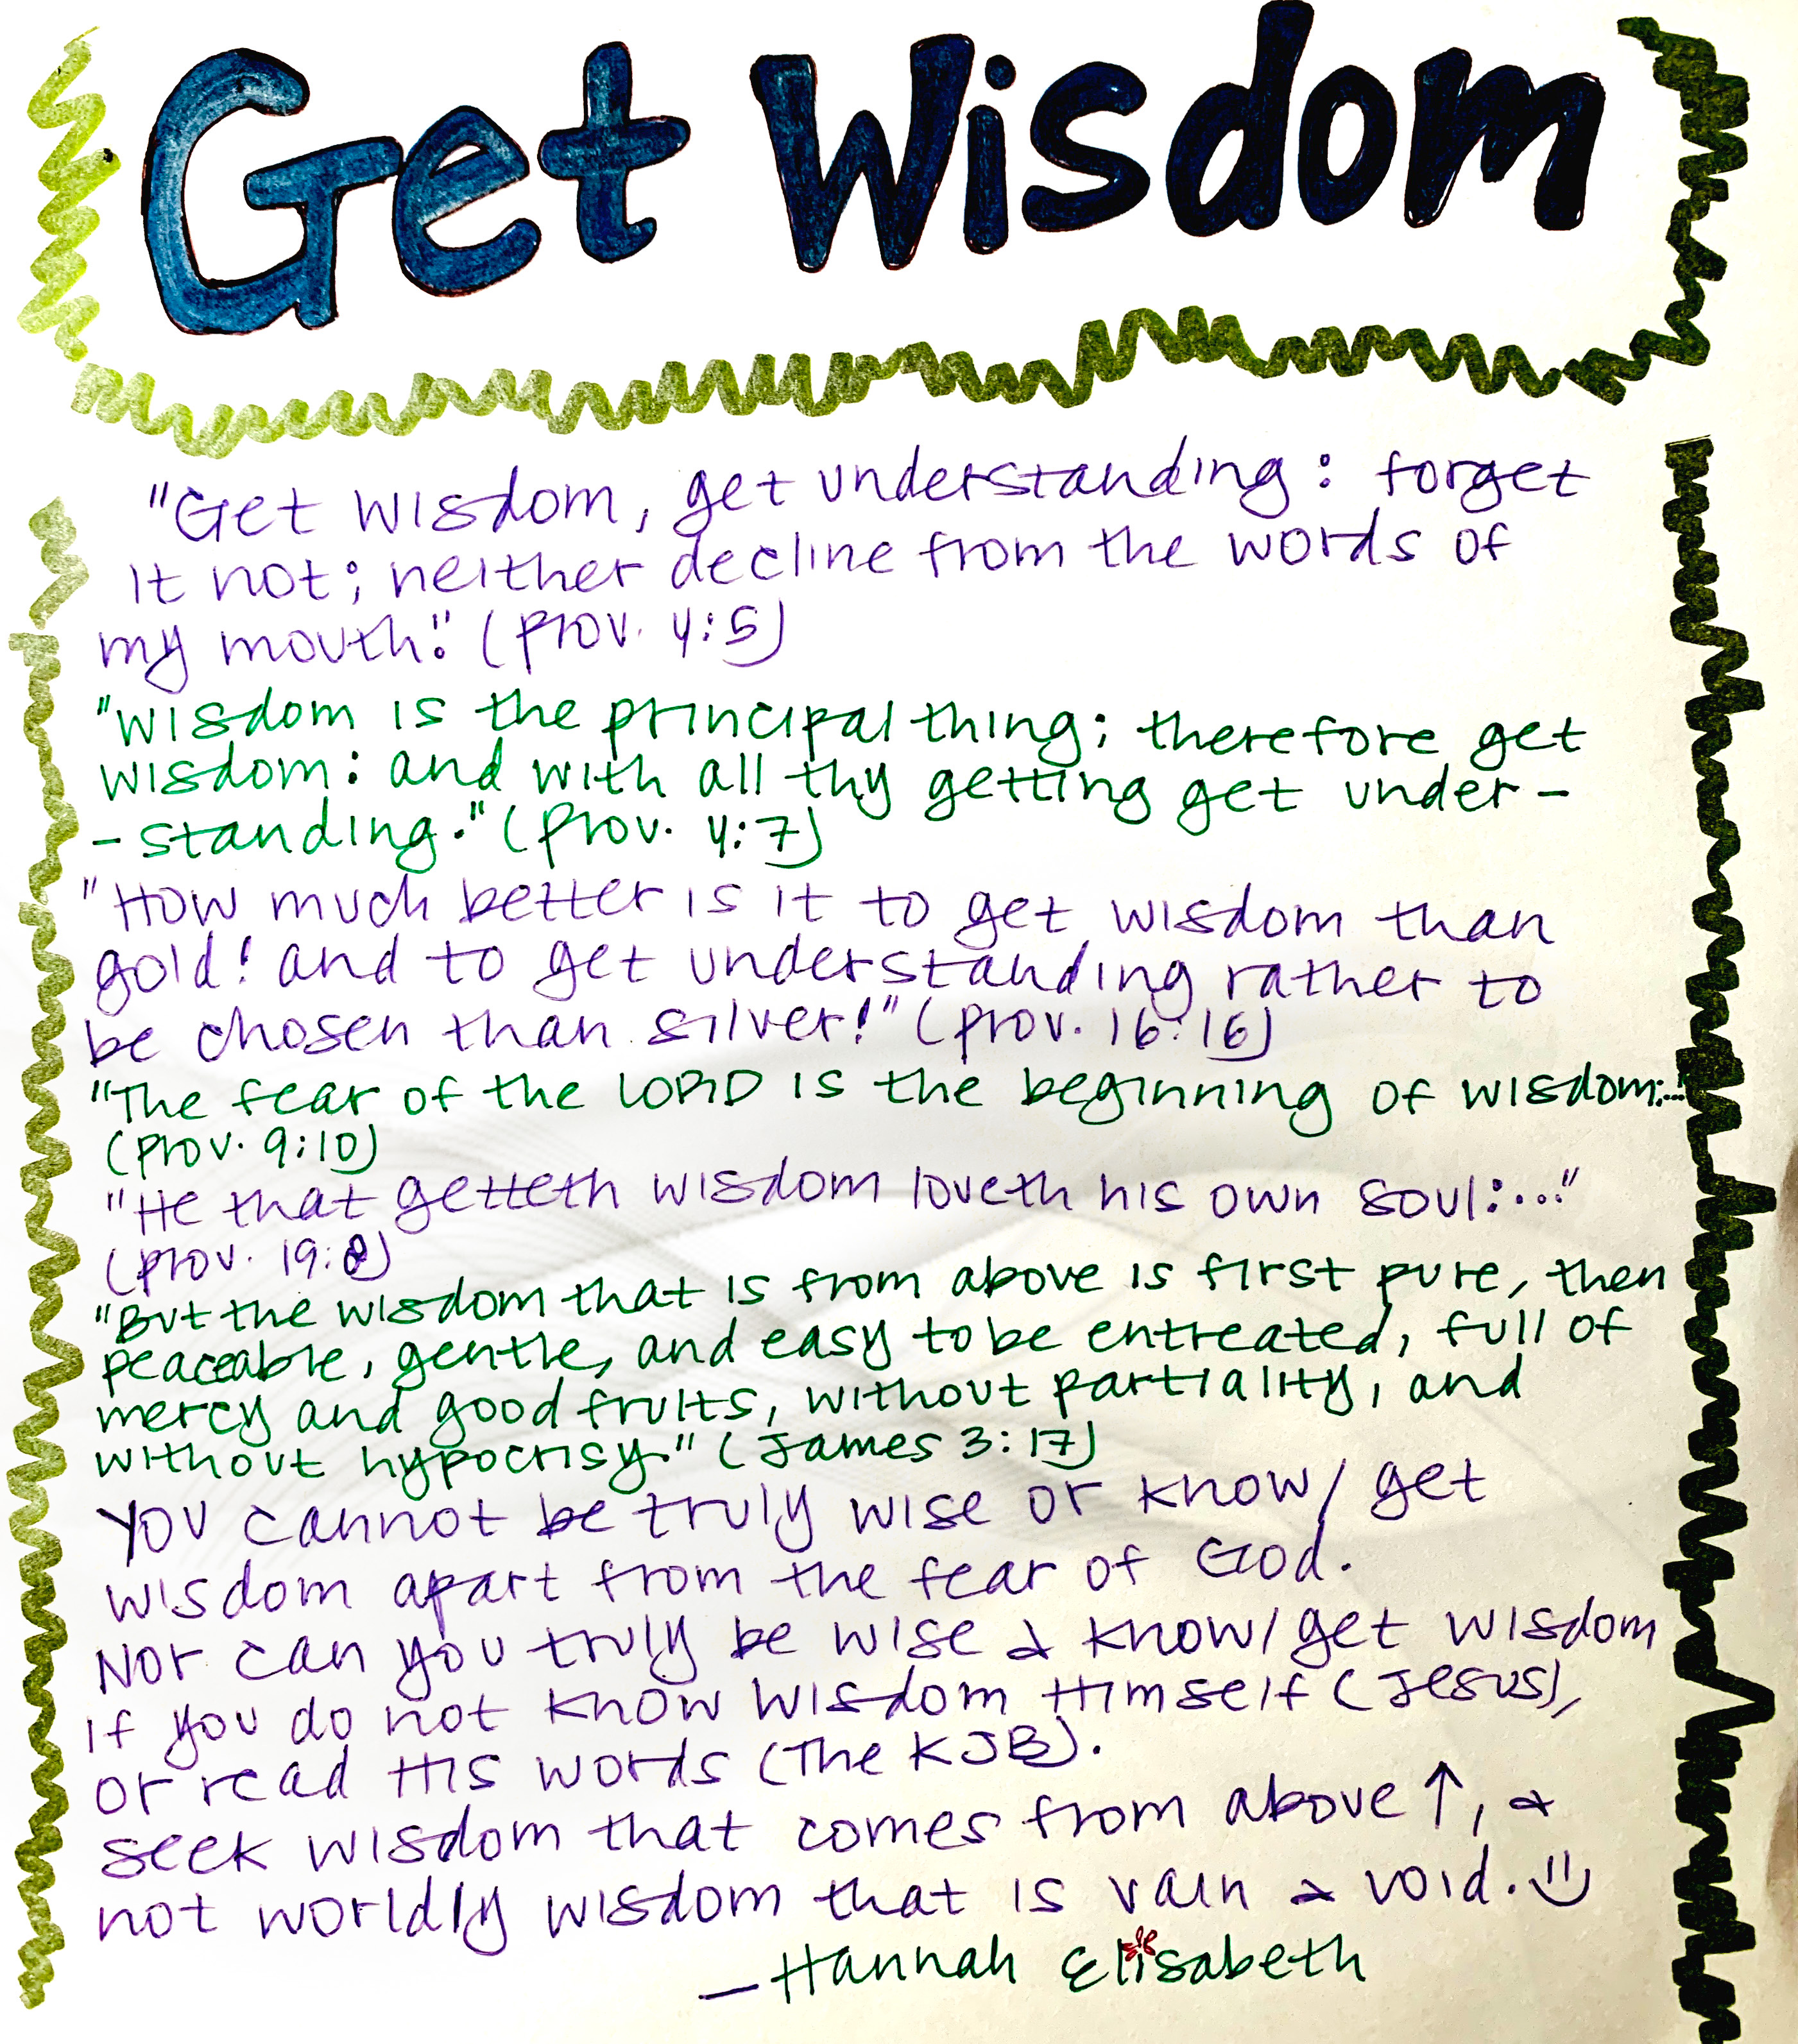 Get Wisdom
"Get wisdom, get understanding: forget
it not; neither decline from the words of
my mouth." (Prov. 4:5)
"Wisdom is the principal thing; therefore get
wisdom: and with all thy getting get under-
-standing." (Prov. 4:7)
"How much better is it to get wisdom than
gold! and to get understanding rather to
be chosen than silver!" (Prov. 16:16)
"The fear of the LORD is the beginning of wisdom:..."
(Prov. 9:10)
"He that getteth wisdom loveth his own soul:..."
(Prov. 19:8)
"But the wisdom that is from above is first pure, then
peaceable, gentle, and easy to be entreated, full of
mercy and good fruits, without partiality, and
without hypocrisy." (James 3:17)
You cannot be truly wise or know/get
wisdom apart from the fear of God.
Nor can you truly be wise & know/get wisdom
if you do not know Wisdom Himself (Jesus),
or read His words (The KJB).
Seek wisdom that comes from above ↑, &
not worldly wisdom that is vain & void. :)
—Hannah Elisabeth